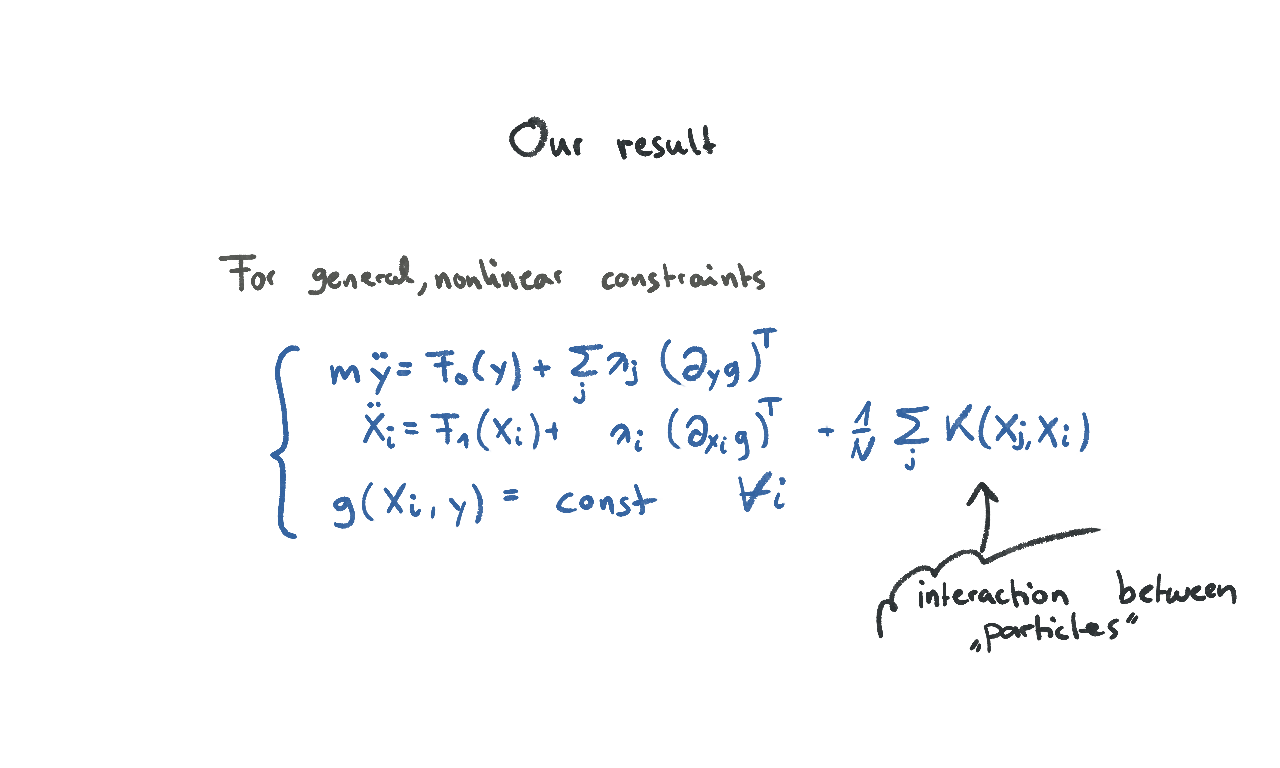 Our result
For general, nonlinear constraints
m ÿ = F₀(y) + Σ_j λ_j (∂_y g)^T
Ẍ_i = F₁(X_i) + λ_i (∂_{X_i} g)^T - 1/N Σ_j K(X_j, X_i)
g(X_i, y) = const ∀i
interaction between
„particles“